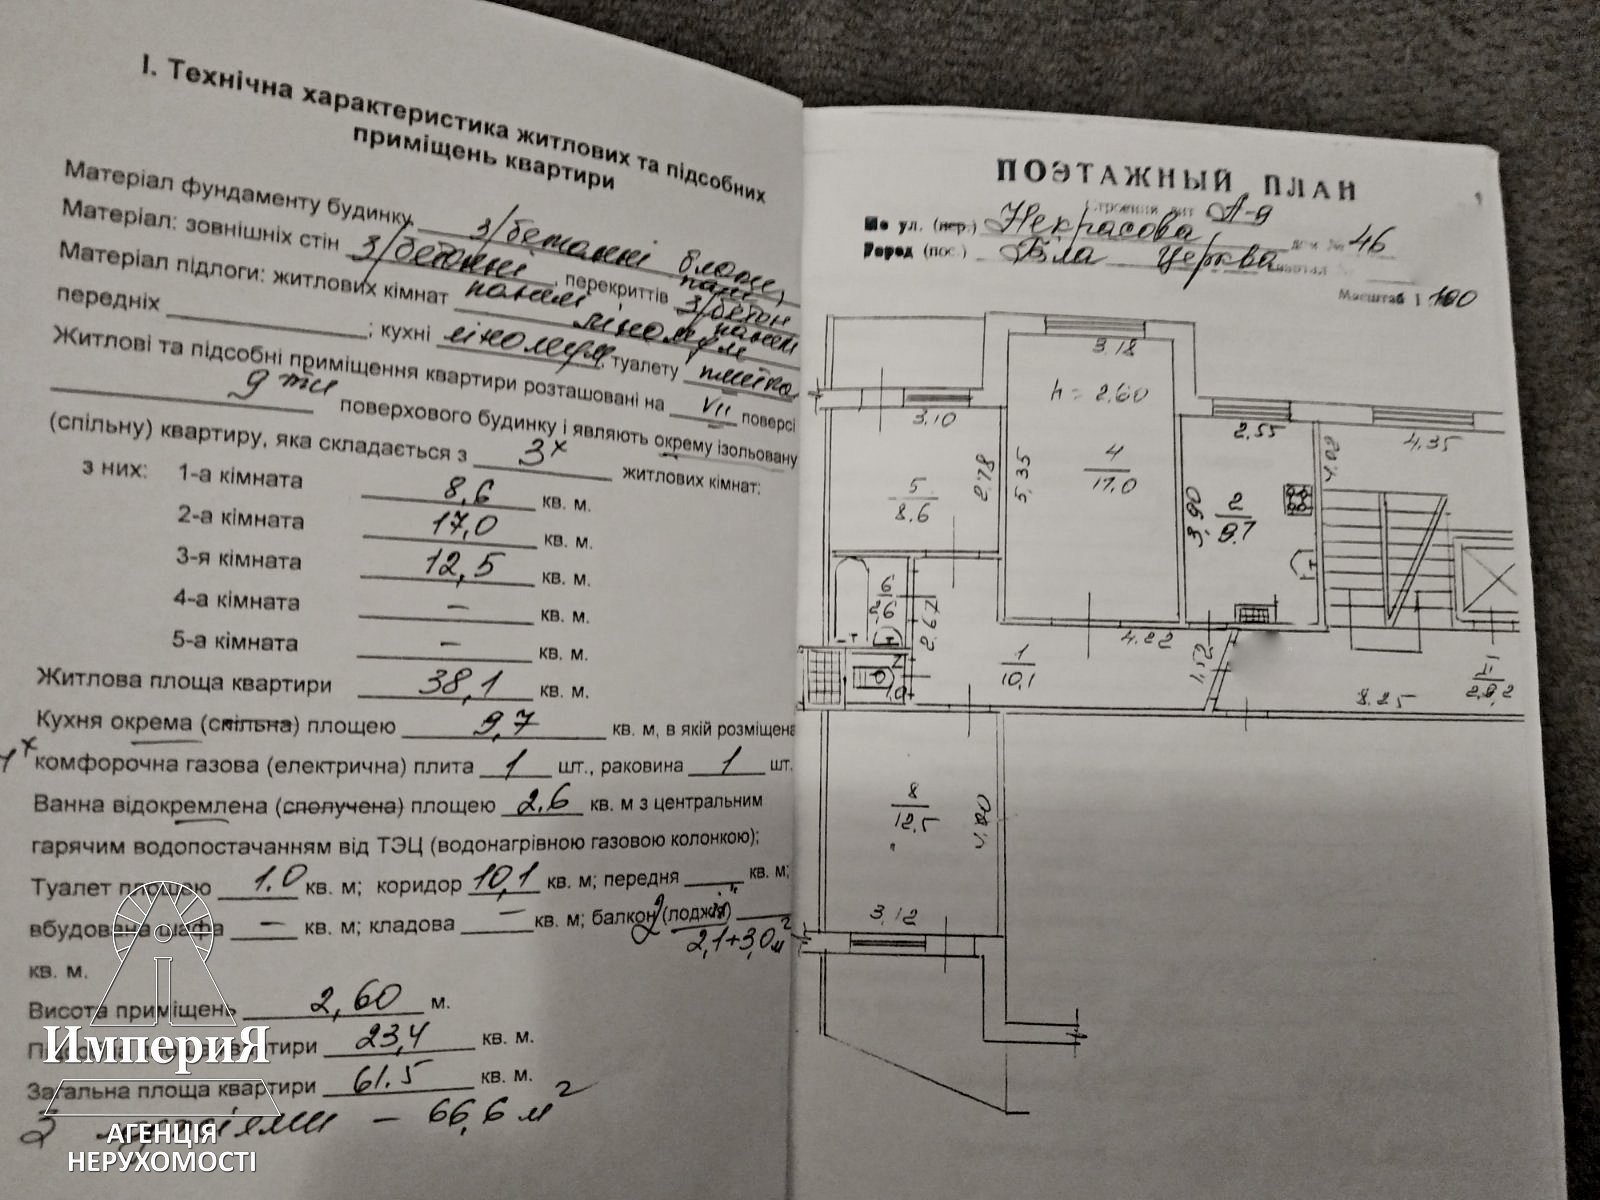 І. Технічна характеристика житлових та підсобних
приміщень квартири
Матеріал фундаменту будинку з/бетонні блоки,
Матеріал: зовнішніх стін з/бетонні, перекриттів
панелі з/бетон
Матеріал підлоги: житлових кімнат лінолеум
передніх ; кухні лінолеум, туалету плитка
Житлові та підсобні приміщення квартири розташовані на VII поверсі
9 ти поверхового будинку і являють окрему ізольовану
(спільну) квартиру, яка складається з 3х житлових кімнат:
з них: 1-а кімната 8,6 кв. м.
2-а кімната 17,0 кв. м.
3-я кімната 12,5 кв. м.
4-а кімната – кв. м.
5-а кімната – кв. м.
Житлова площа квартири 38,1 кв. м.
Кухня окрема (спільна) площею 9,7 кв. м, в якій розміщена
4х комфорочна газова (електрична) плита 1 шт., раковина 1 шт.
Ванна відокремлена (сполучена) площею 2.6 кв. м з центральним
гарячим водопостачанням від ТЭЦ (водонагрівною газовою колонкою);
Туалет площою 1.0 кв. м; коридор 10,1 кв. м; передня кв. м;
вбудована шафа – кв. м; кладова – кв. м; балкон (лоджія)
2,1+3,0 м²
кв. м.
Висота приміщень 2,60 м.
Підсобна площа квартири 23,4 кв. м.
Загальна площа квартири 61.5 кв. м.
З лоджіями – 66,6 м²
ИмпериЯ
АГЕНЦІЯ
НЕРУХОМОСТІ
ПОЭТАЖНЫЙ ПЛАН
1
Строения лит А-9
По ул. (пер.) Некрасова, дом № 46
Город (пос.) Біла Церква квартал №
Масштаб 1:100
3.18
h = 2.60
3.10
2.55
4.35
4.08
2.78
5.35
4
17.0
5
8.6
3.90
2
9.7
6
2.6
2.67
4.22
7
1.0
1
10,1
1.52
8.25
8
12.5
4.00
3.12